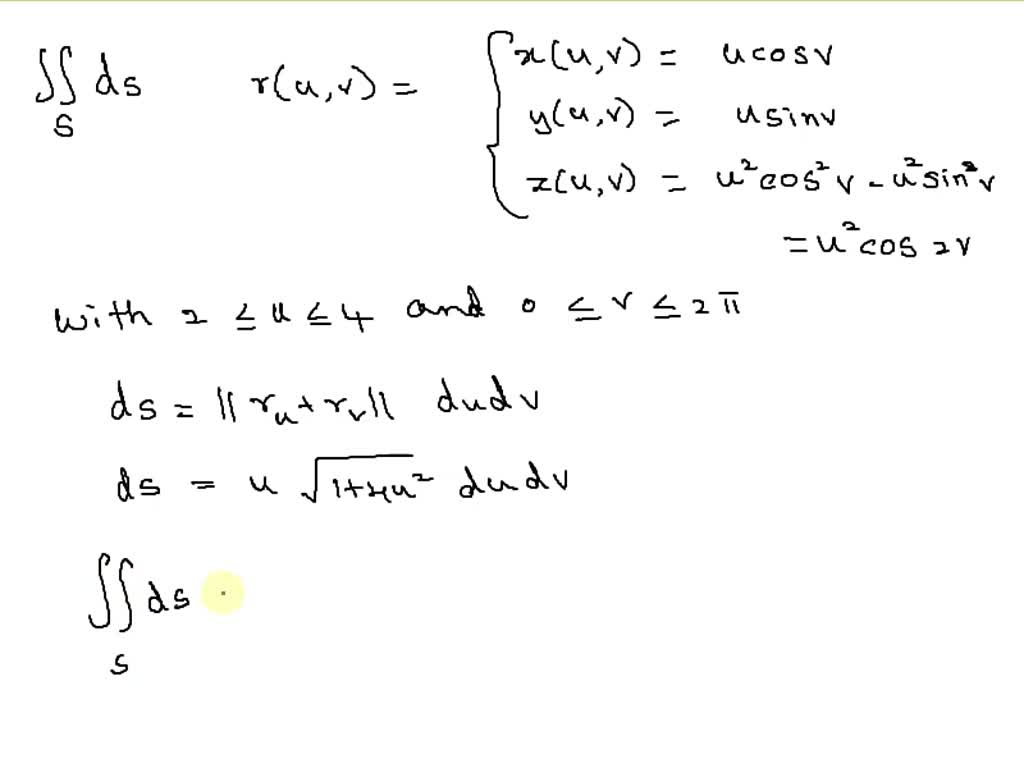 ∬_S ds r(u,v) = { x(u,v) = u cos v
y(u,v) = u sin v
z(u,v) = u² cos² v - u² sin² v
= u² cos 2v
with 2 ≤ u ≤ 4 and 0 ≤ v ≤ 2π
ds = || r_u + r_v || du dv
ds = u √(1+4u²) du dv
∬_S ds